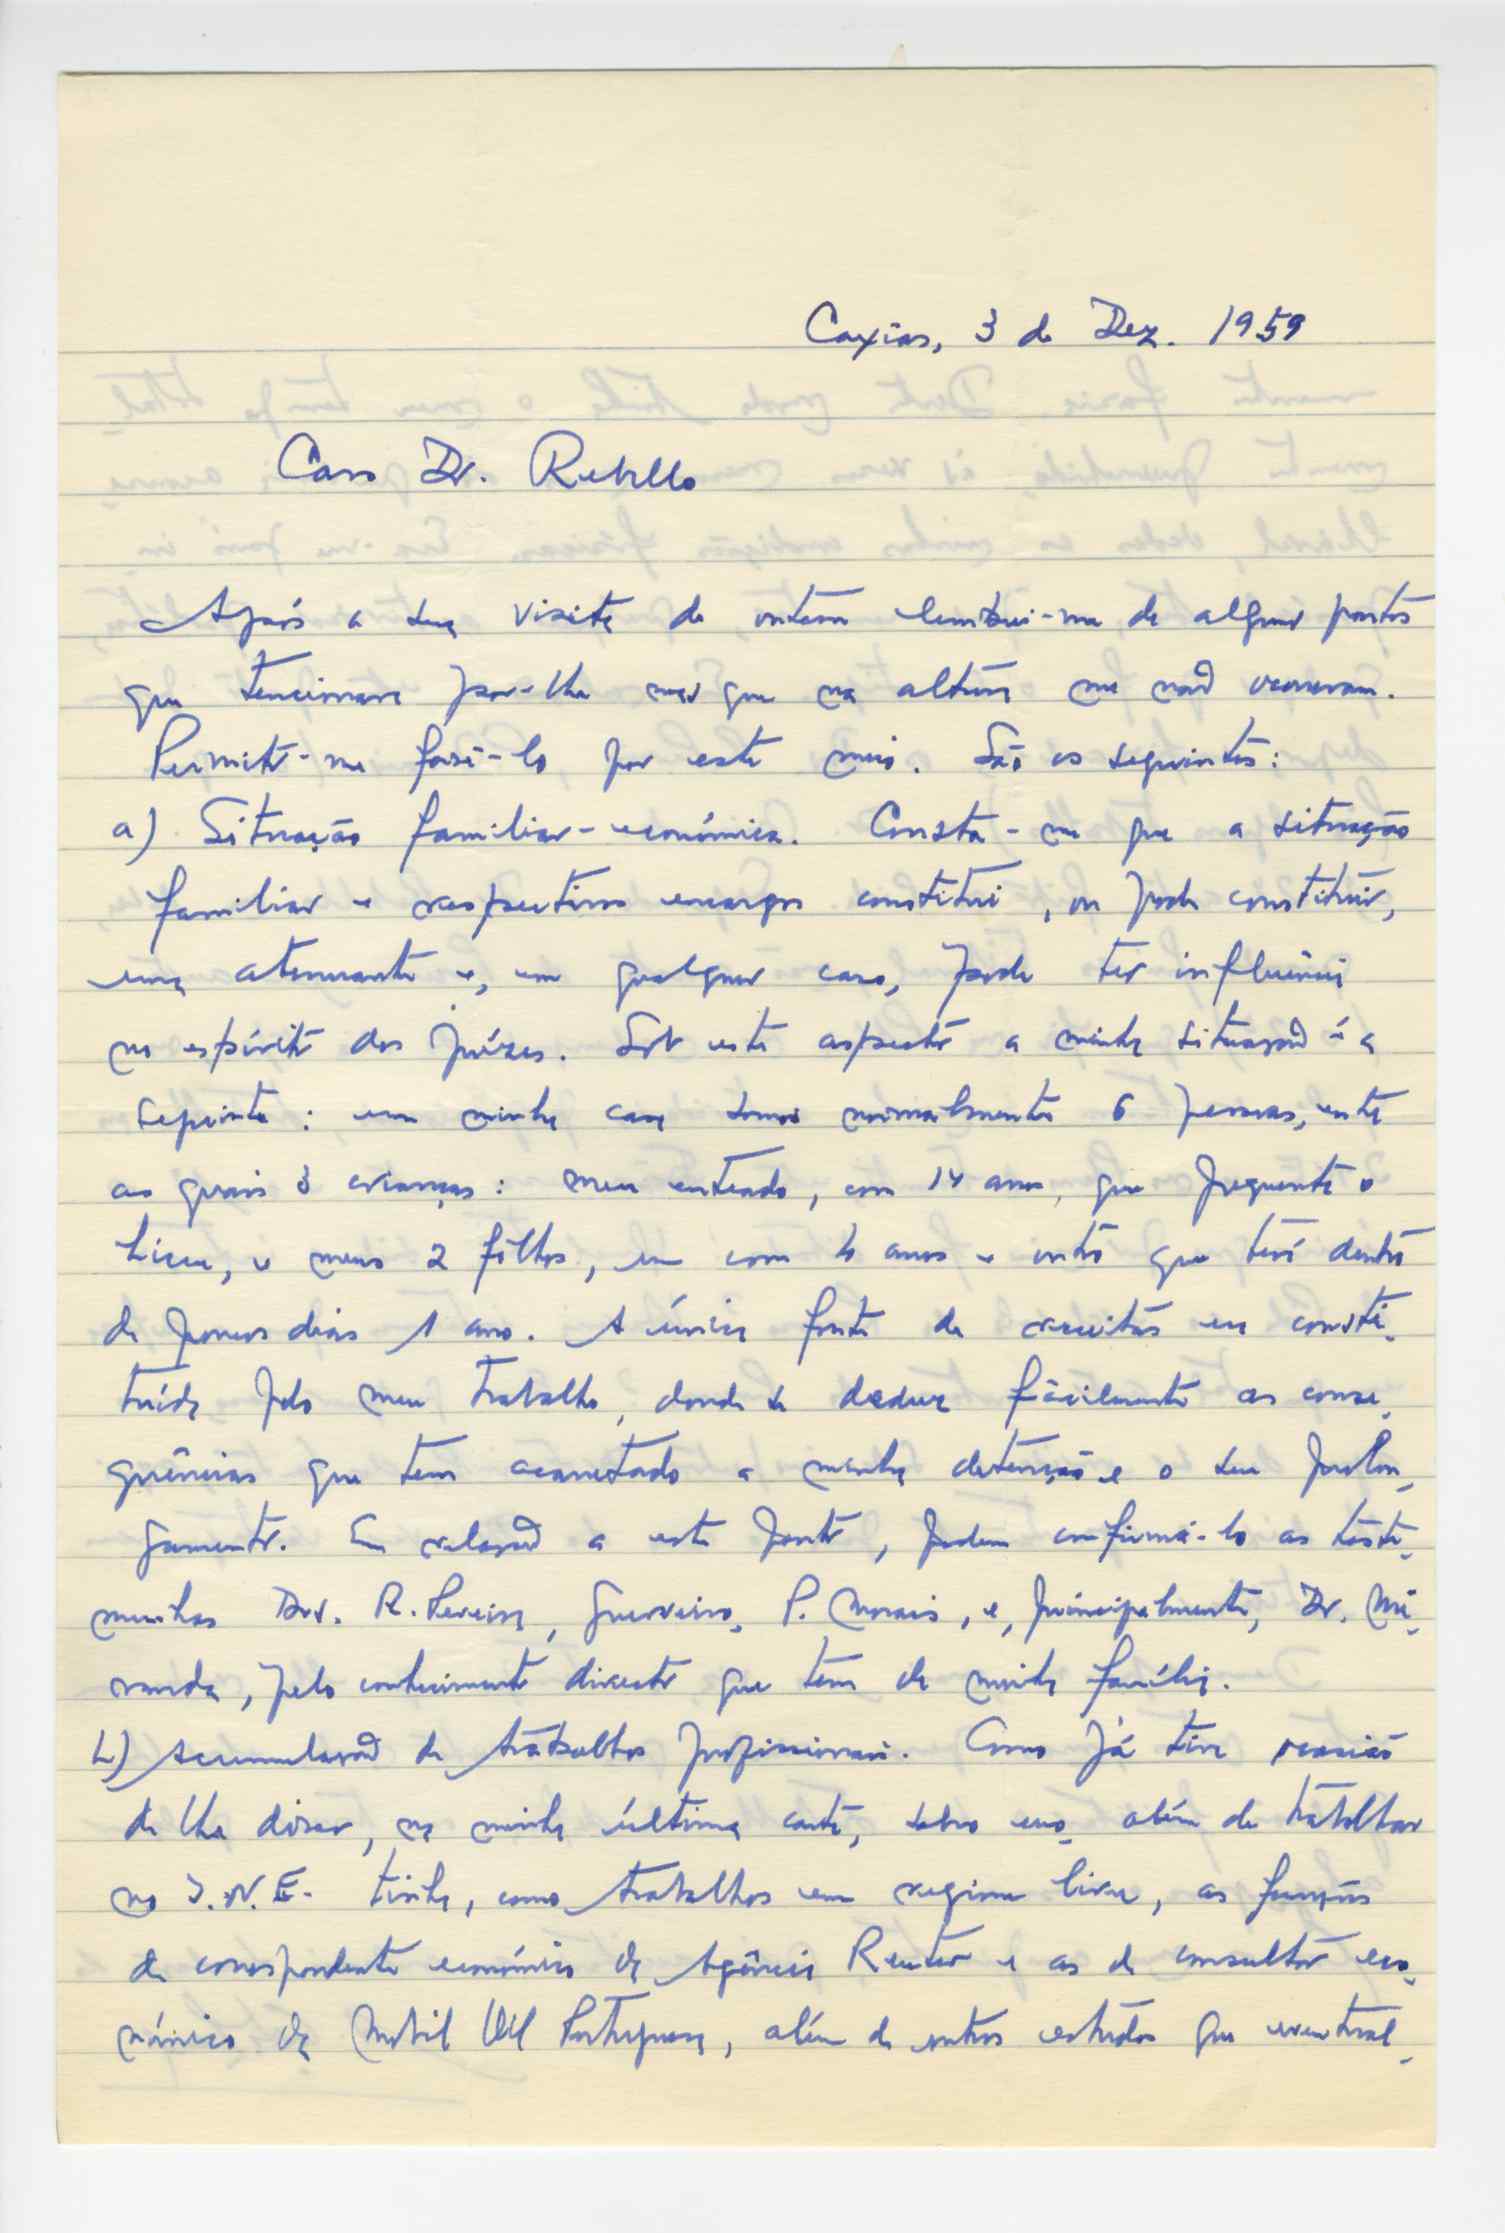 Caxias, 3 de Dez. 1959
Caro Dr. Rebello
Após a sua visita de ontem lembrei-me de alguns pontos
que tencionava pôr-lhe mas que na altura me não ocorreram.
Permita-me fazê-lo por este meio. São os seguintes:
a) Situação familiar-económica. Consta-me que a situação
familiar e respectivos encargos constitui, ou pode constituir,
uma atenuante e, em qualquer caso, pode ter influência
no espírito dos juízes. Sob este aspecto a minha situação é a
seguinte: em minha casa somos normalmente 6 pessoas, entre
as quais 3 crianças: meu enteado, com 14 anos, que frequenta o
Liceu, e meus 2 filhos, um com 4 anos e outro que terá dentro
de poucos dias 1 ano. A única fonte de receitas era consti-
tuída pelo meu trabalho, donde se deduz fàcilmente as conse-
quências que tem acarretado a minha detenção e o seu prolon-
gamento. Em relação a este ponto, podem confirmá-lo as teste-
munhas Drs. R. Pereira, Guerreiro, P. Morais, e, principalmente, Dr. Mi-
randa, pelo conhecimento directo que tem da minha família.
b) Acumulação de trabalhos profissionais. Como já tive ocasião
de lhe dizer, na minha última carta, sobre isso, além de trabalhar
no I.N.E. tinha, como trabalhos em regime livre, as funções
de correspondente económico da Agência Reuter e as de consultor eco-
nómico da Mobil Oil Portuguesa, além de outros estudos que eventual-